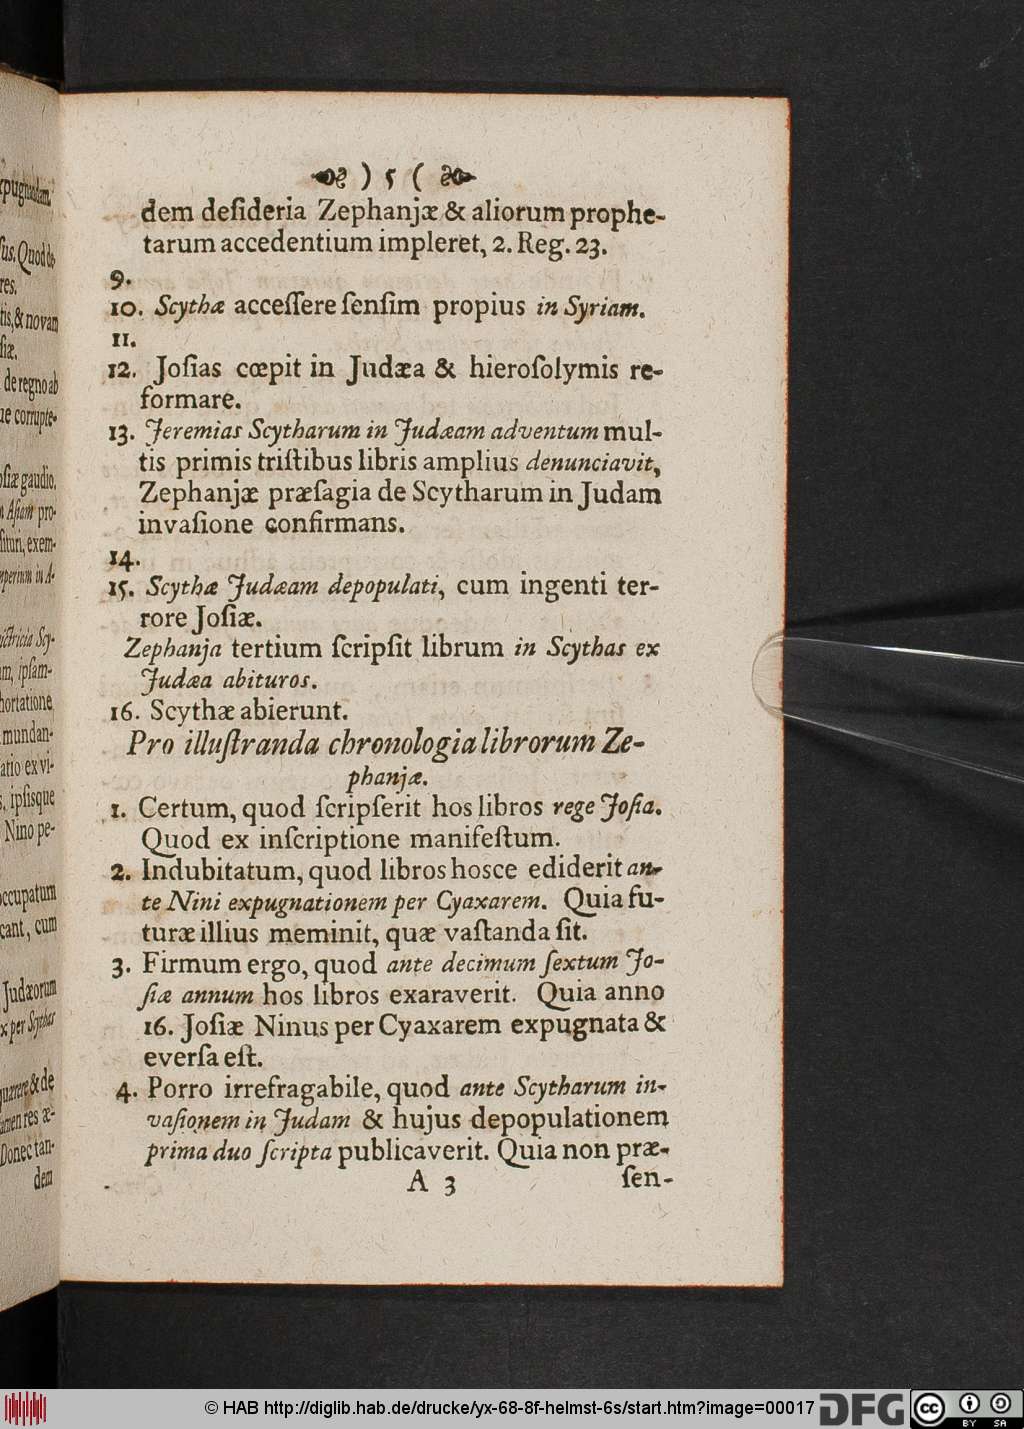 ) 5 (
dem deſideria Zephanjæ & aliorum prophe-
tarum accedentium impleret, 2. Reg. 23.
9.
10. Scythæ acceſſere ſenſim propius in Syriam.
11.
12. Joſias cœpit in Judæa & hieroſolymis re-
formare.
13. Jeremias Scytharum in Judæam adventum mul-
tis primis triſtibus libris amplius denunciavit,
Zephanjæ præſagia de Scytharum in Judam
invaſione confirmans.
14.
15. Scythæ Judæam depopulati, cum ingenti ter-
rore Joſiæ.
Zephanja tertium ſcripſit librum in Scythas ex
Judæa abituros.
16. Scythæ abierunt.
Pro illuſtranda chronologia librorum Ze-
phanjæ.
1. Certum, quod ſcripſerit hos libros rege Joſia.
Quod ex inſcriptione manifeſtum.
2. Indubitatum, quod libros hosce ediderit an-
te Nini expugnationem per Cyaxarem. Quia fu-
turæ illius meminit, quæ vaſtanda ſit.
3. Firmum ergo, quod ante decimum ſextum Jo-
ſiæ annum hos libros exaraverit. Quia anno
16. Joſiæ Ninus per Cyaxarem expugnata &
everſa eſt.
4. Porro irrefragabile, quod ante Scytharum in-
vaſionem in Judam & hujus depopulationem
prima duo ſcripta publicaverit. Quia non præ-
A 3 ſen-
de regno ab
oſiæ gaudio,
ſituri, exem-
hortatione
mundan-
atio ex vi-
ipſisque
Nino pe-
occupatum
cant, cum
Judæorum
x per Scythas
Donec tan-
dem
© HAB http://diglib.hab.de/drucke/yx-68-8f-helmst-6s/start.htm?image=00017
DFG
cc BY SA